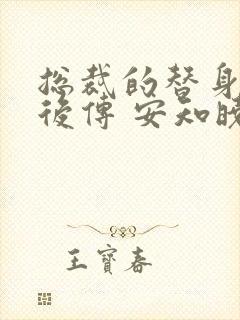 总裁的替身
後傳 安知晓
王寶春